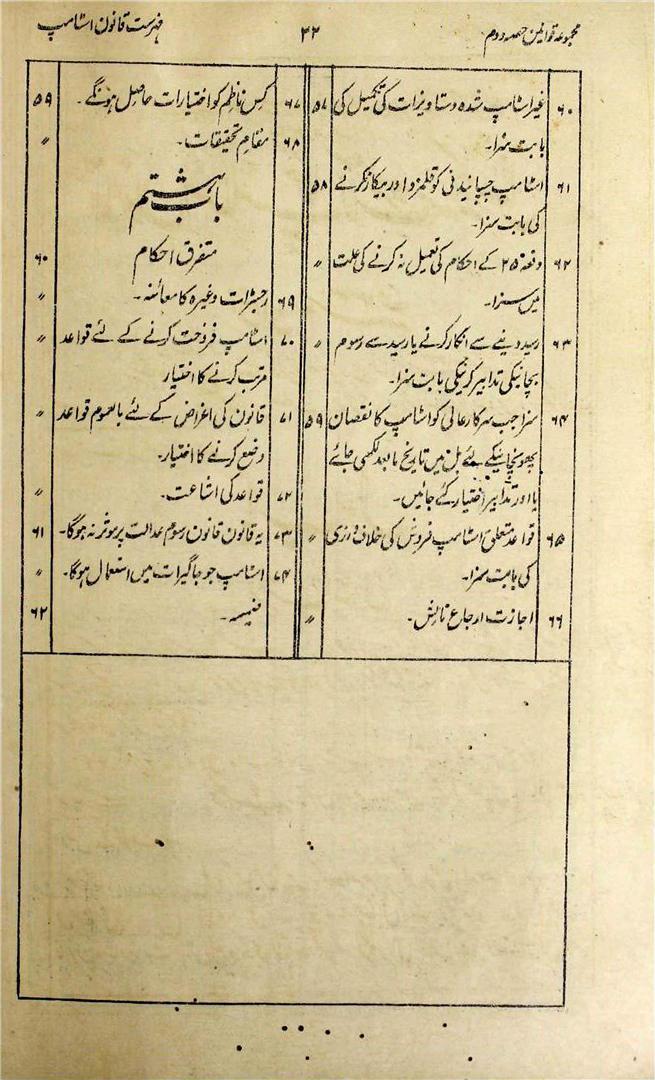 مجموعہ قوانین حصہ دوم
۴۲
فہرست قانون اسٹامپ
۶۰ غیر اسٹامپ شدہ دستاویزات کی تکمیل کی ۵۷
بابت سزا۔
۶۱ اسٹامپ چسپانیدنی کو قلمزد اور بیکار نکرنے ۵۸
کی بابت سزا۔
۶۲ دفعہ ۲۵ کے احکام کی تعمیل نہ کرنے کی علت 〃
میں سزا۔
۶۳ رسید دینے سے انکار کرنے یا رسید سے رسوم 〃
بچانیکی تدابیر کرنیکی بابت سزا۔
۶۴ سزا جب سرکار عالی کو اسٹامپ کا نقصان ۵۹
پھونچانیکے لئے بل میں تاریخ مابعد لکھی جائے
یا اور تدابیر اختیار کئے جائیں۔
۶۵ قواعد متعلق اسٹامپ فروش کی خلاف ورزی 〃
کی بابت سزا۔
۶۶ اجازت ارجاع نالش۔ 〃
۶۷ کس ناظم کو اختیارات حاصل ہونگے۔ ۵۹
۶۸ مقام تحقیقات۔ 〃
باب ہشتم
متفرق احکام ۶۰
۶۹ رجسٹرات وغیرہ کا معائنہ۔ 〃
۷۰ اسٹامپ فروخت کرنے کے لئے قواعد 〃
مرتب کرنے کا اختیار
۷۱ قانون کی اغراض کے لئے بالعموم قواعد 〃
وضع کرنے کا اختیار۔
۷۲ قواعد کی اشاعت۔ 〃
۷۳ یہ قانون قانون رسوم عدالت پر موثر نہ ہوگا۔ ۶۱
۷۴ اسٹامپ جو جاگیرات میں استعمال ہوگا۔ 〃
ضمیمہ۔ ۶۲